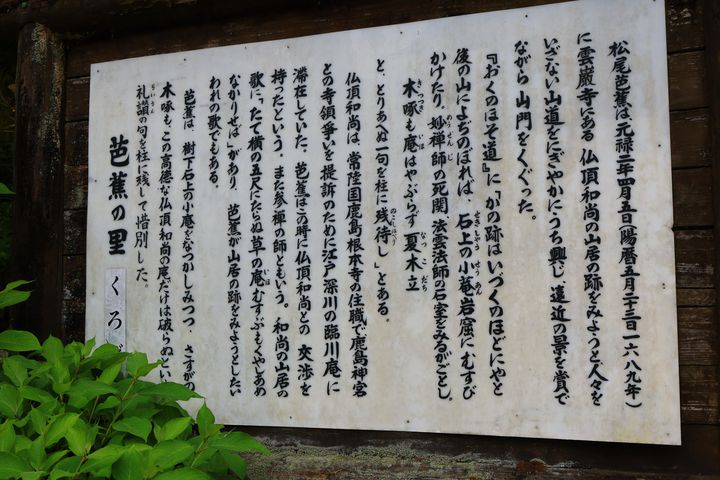 松尾芭蕉は、元禄二年四月五日(陽暦五月二十三日一六八九年)
に雲巌寺にある仏頂和尚の山居の跡をみようと人々を
いざない山道をにぎやかにうち興じ、遠近の景を賞で
ながら山門をくぐった。
『おくのほそ道』に「かの跡はいづくのほどにやと
後の山によぢのぼれば、石上の小菴岩窟にむすび
せきしゃう せうあん
かけたり。妙禅師の死関、法雲法師の石室をみるがごとし。
めうぜんじ
木啄も庵はやぶらず夏木立
きつつき いほ なつこだち
と、とりあへぬ一句を柱に残侍し」とある。
のこしはべり
仏頂和尚は、常陸国鹿島根本寺の住職で鹿島神宮
との寺領争いを提訴のために江戸深川の臨川庵に
滞在していた。芭蕉はこの時に仏頂和尚との交渉を
持ったという。また参禅の師ともいう。和尚の山居の
歌に「たて横の五尺にたらぬ草の庵むすぶもくやしあめ
なかりせば」があり、芭蕉が山居の跡をみようとしたい
われの歌でもある。
芭蕉は、樹下石上の小庵をなつかしみつつ、さすがの
木啄も、この高徳な仏頂和尚の庵だけは破らぬとい
礼讃の句を柱に残して惜別した。
らいさん
芭蕉の里 くろ